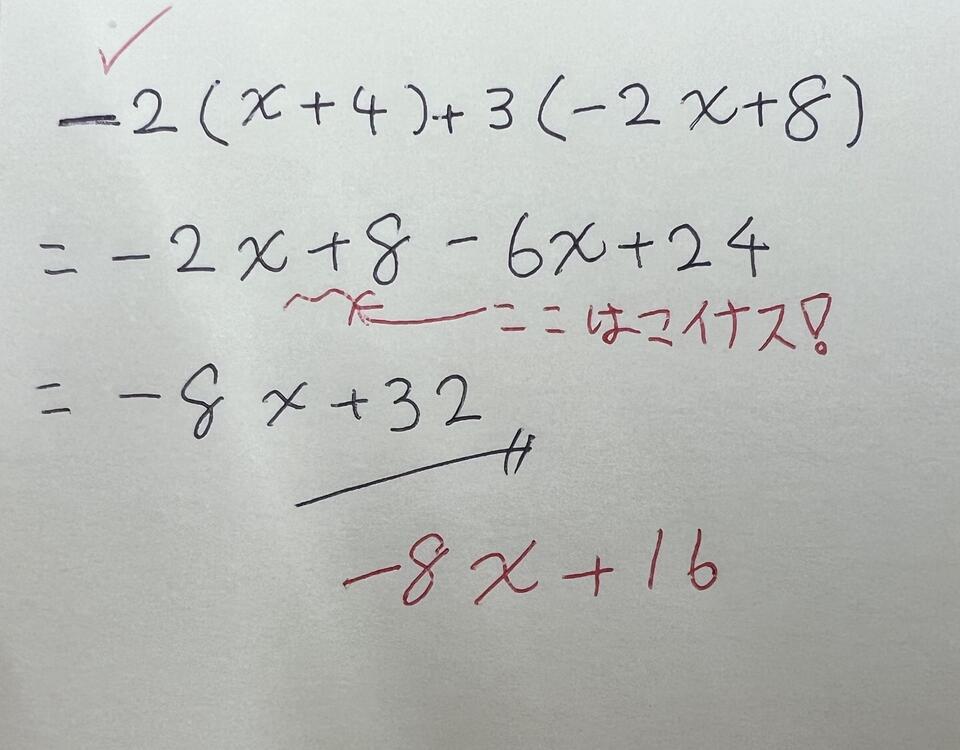 -2(x+4)+3(-2x+8)
= -2x+8-6x+24
ここはマイナス!
= -8x+32
-8x+16